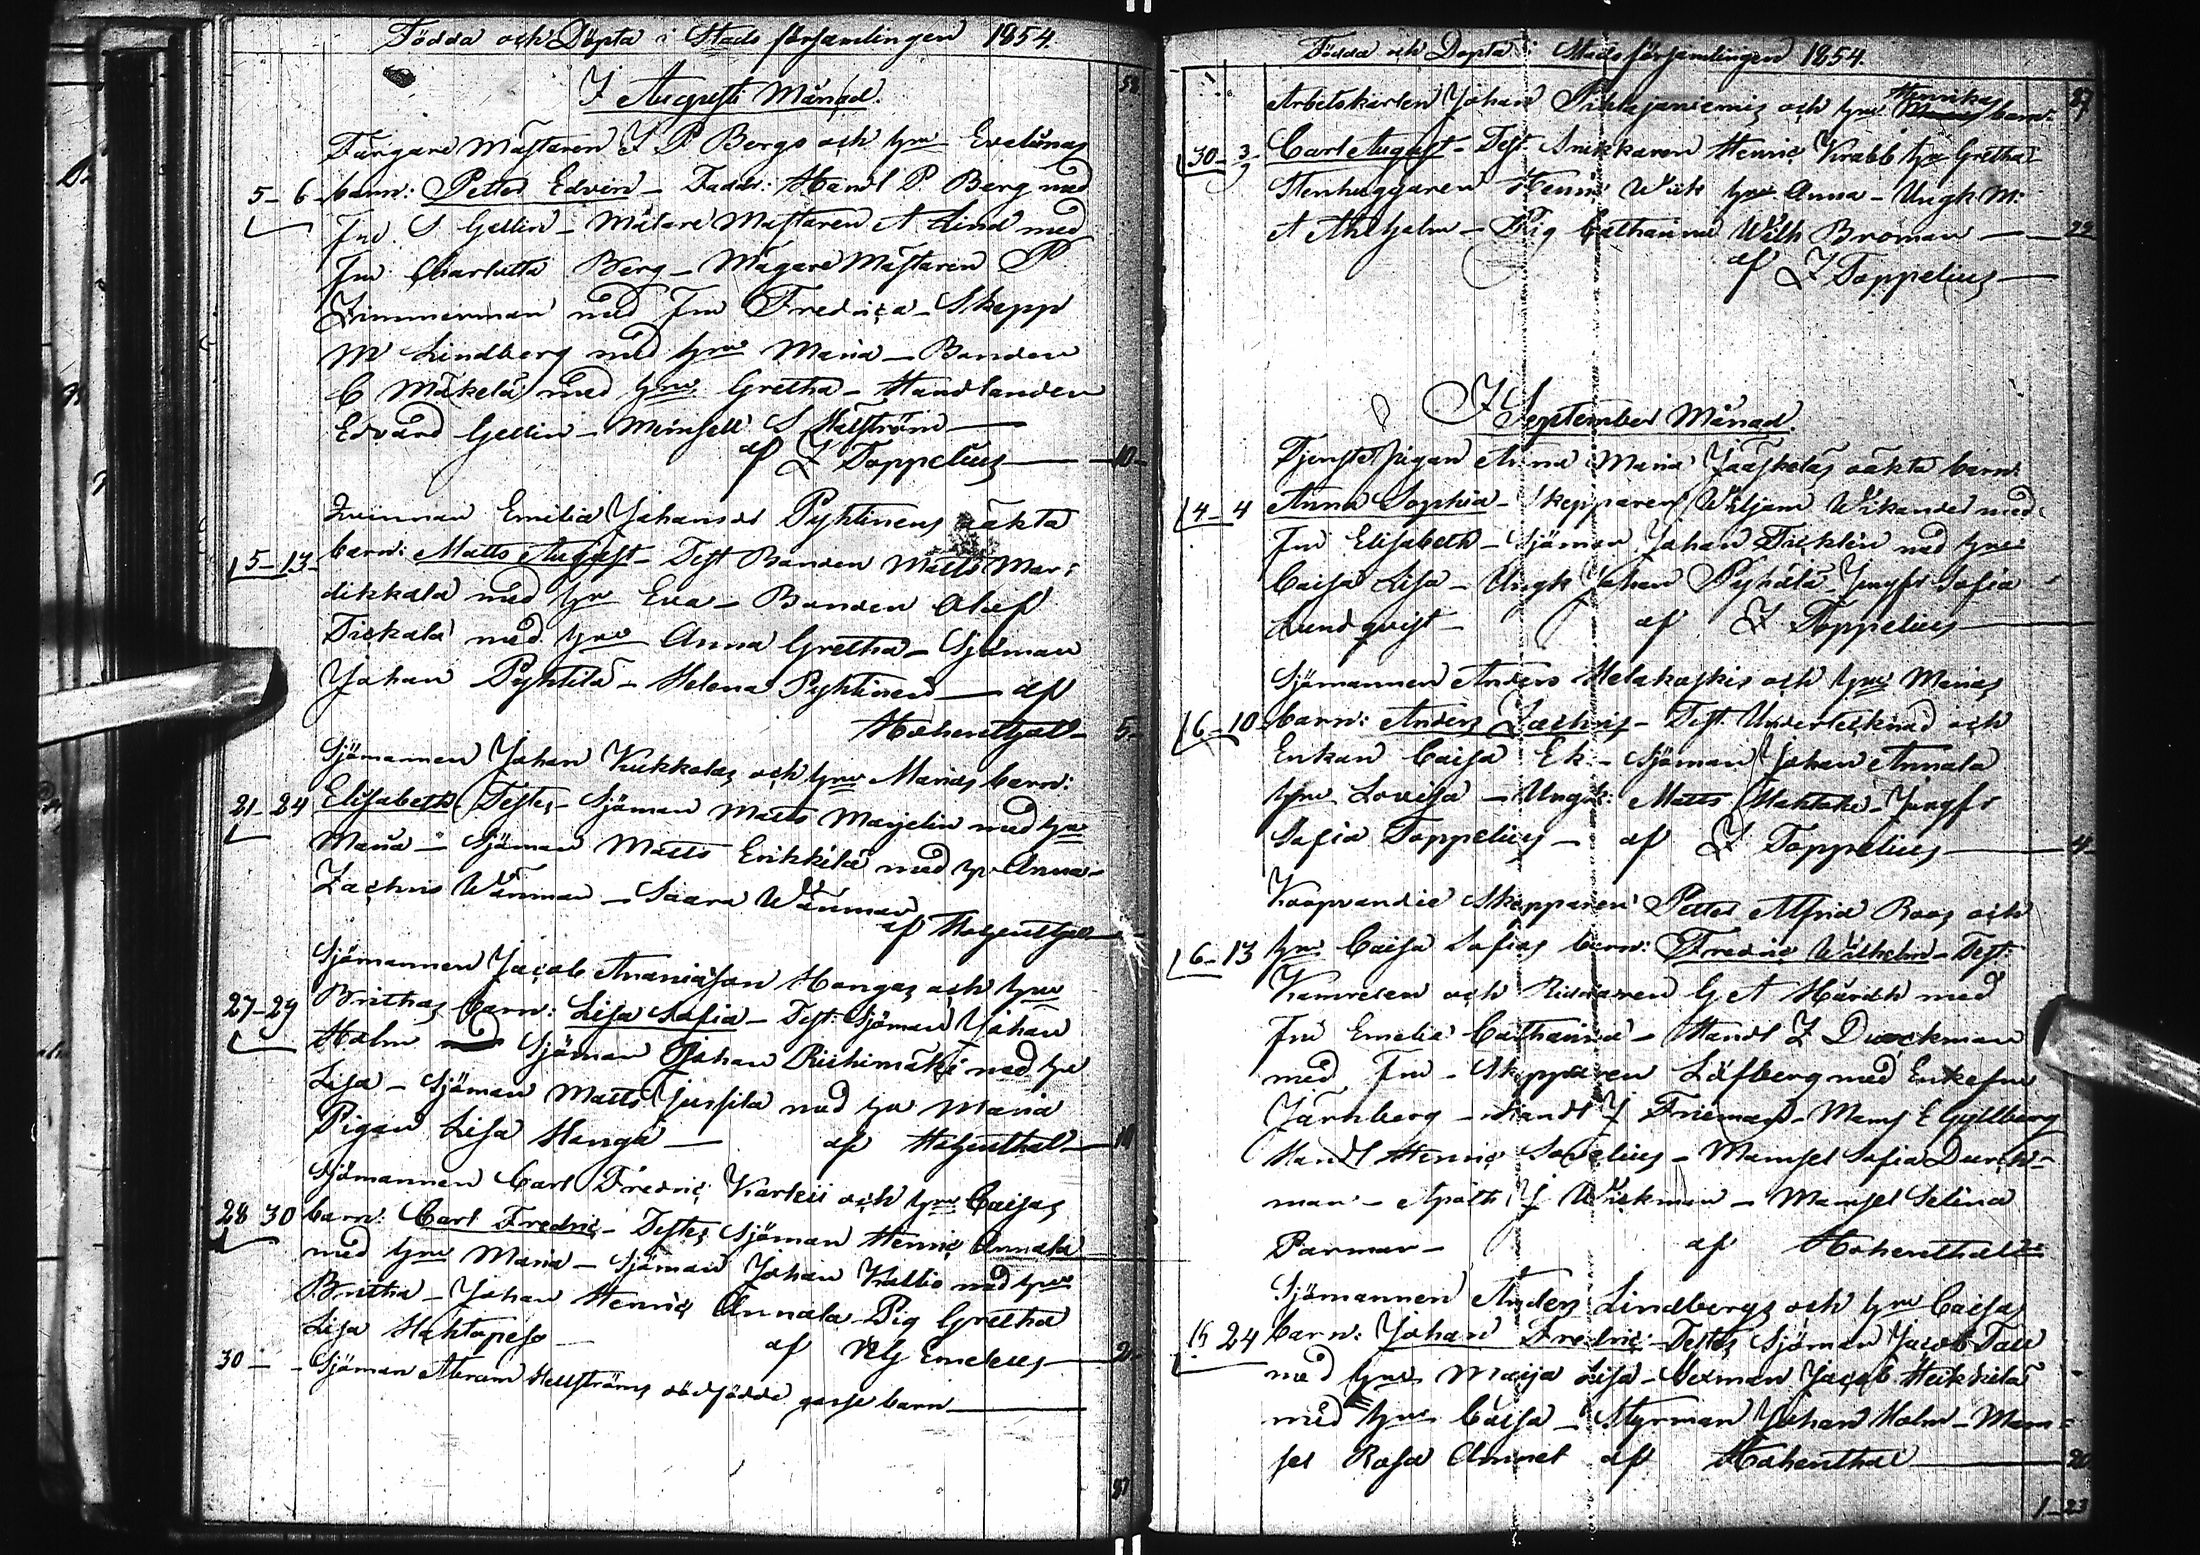 Födda och Döpta i Stads församlingen 1854.
I Augusti Månad.
Färgare Mästaren J P Bergs och hu Evelinas
5 - 6 barn: Petter Edvin - Faddr: Handl P. Berg med
Fru S Gellin - Målare Mästaren A Lind med
Fru Charlotta Berg - Mästaren P
Zimmerman med Fru Fredrica - Skepp
M Lindberg med hu Maria - Bonden
C Mäkelä med hu Gretha - Handlanden
Edvard Gellin - Mamsell S Hellström
af Z Toppelius 10
Qvinnan Emilia Johansdr Pyhtinens oäkta
5 - 13 barn: Matts August - Test Bonden Matts Mar-
dikkala med hu Eva - Bonden Olof
Tiskala med hu Anna Gretha - Sjöman
Johan Pyhtilä - Helena Pyhtinen - af
Hohenthal 5
Sjömannen Johan Kukkolas och hu Marias barn:
21 - 24 Elisabeth Testes - Sjöman Matts Marjelin med hu
Maria - Sjöman Matts Erikkilä med hu Anna -
Zachris Wänman - Saara Wänman
af Hohenthal
Sjömannen Jacob Ananiasson Hongas och hu
27 - 29 Brithas barn: Lisa Sofia - Test: Sjöman Johan
Holm Sjöman Johan Riihimäki med hu
Lisa - Sjöman Matts Jussila med hu Maria
Pigan Lisa Hanga - af Hohenthal
Sjömannen Carl Fredric och hu Caisas
28 30 barn: Carl Fredric - Testes Sjöman Henric Annala
med hu Maria - Sjöman Johan Kallio med hu
Britha - Johan Henric Annala Pig Gretha
Lisa Hahtapeso af 2
30 - Sjöman Abram Hellströms dödfödde gosse barn
87
Födda och Döpta i Stads församlingen 1854.
Arbetskarlen Johan Pihlajaniemis och hu Henrikas barn: 87
30 - 3 Carl August - Test. Snikkaren Henric Krabb hu Gretha
Stenhuggaren Henric Wiik hu Anna - Ungk M:
A Ahlholm - Pig Catharina Wilh Broman 22
af Z Toppelius
I September Månad.
Tjenste pigan Anna Maria Jääskeläs oäkta barn:
4 - 4 Anna Sophia - Skepparen Wiljam Wikander med
Fru Elisabeth - Sjöman Johan Fricklin med hu
Caisa Lisa - Ungk Johan Pyhälä - Jungfr Sofia
Lundqvist - af Z Toppelius
Sjömannen Anders Melakoskis och hu Marias
6 - 10 barn: Anders Zachris - Test. Undertecknad och
Enkan Caisa Ek - Sjöman Johan Annala
hu Lovisa - Ungk: Matts - Jungfr
Sofia Toppelius - af Z Toppelius 4
Koopvardie Skepparen Petter Alfrid Roos och
6 - 13 hu Caisa Sofias barn: Fredric Wilhelm - Test.
Kamreren och Riddaren G A Hårdh med
Fru Emelie Catharina - Handl Z Durckman
med Fru - Skepparen Löfberg med Enkefru
Järnberg - Handl J Frieman - Mams E Gyllberg
Handl Henric Sovelius - Mamsel Sofia Durck-
man - Apoth J Wickman - Mamsel Selina
Parman - af Hohenthal
Sjömannen Anders Lindbergs och hu Caisas
15 24 barn: Johan Fredric - Testes Sjöman Jacob Tall
med hu Maija Lisa - Jacob Heikkilä
med hu Caisa - Styrman Johan Holm - Mam-
sel Rosa af Hohenthal 20
1 - 23